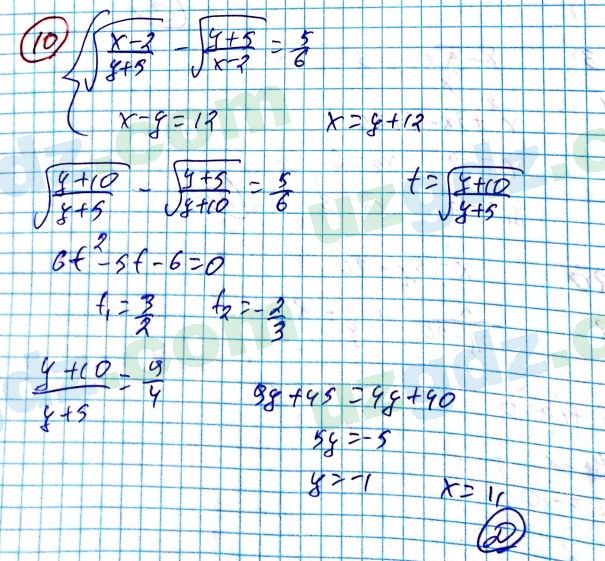 10 { √((x-2)/(y+5)) - √((y+5)/(x-2)) = 5/6
x-y=12    x=y+12
√((y+10)/(y+5)) - √((y+5)/(y+10)) = 5/6    t=√((y+10)/(y+5))
6t²-5t-6=0
t₁=3/2    t₂=-2/3
(y+10)/(y+5) = 9/4    9y+45=4y+40
5y=-5
y=-1    x=11
D